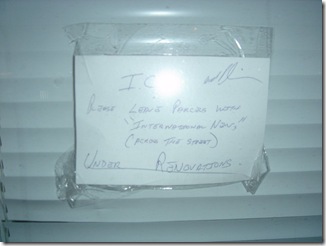 I.C.
Please Leave Parcel with
"International Nav,"
(across the street)
Under Renovations.